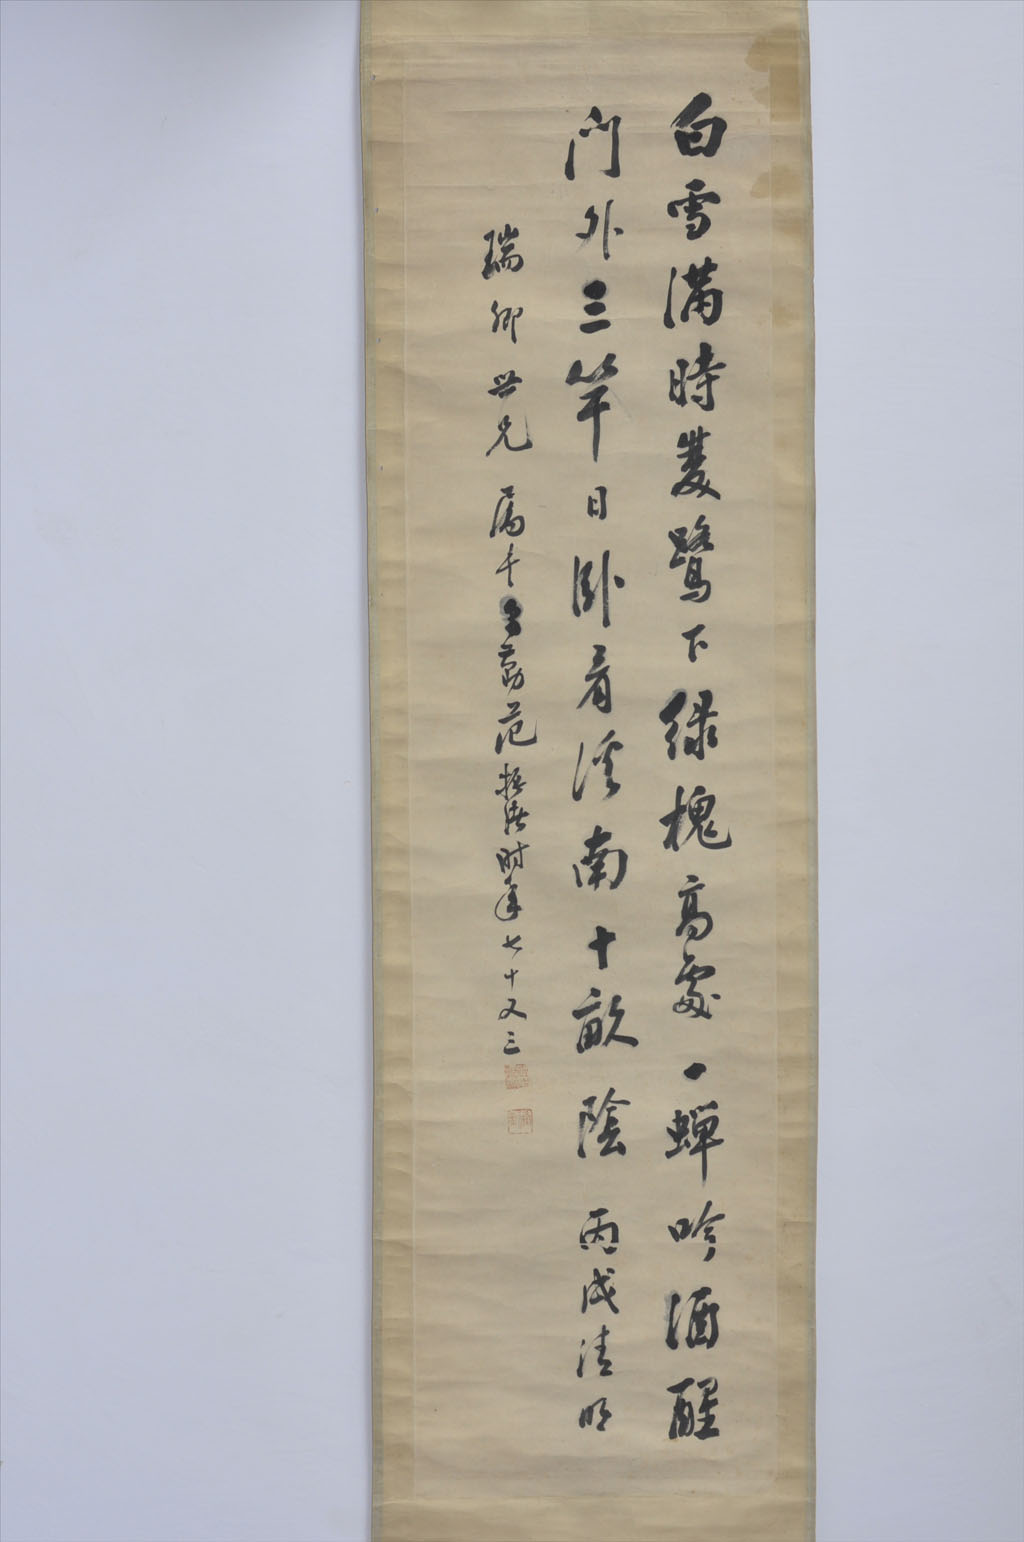 白雪滿時雙鷺下綠槐高處一蟬吟酒醒
門外三竿日卧看溪南十畝陰 丙戌清明
瑞卿世兄 屬 范 時年七十又三